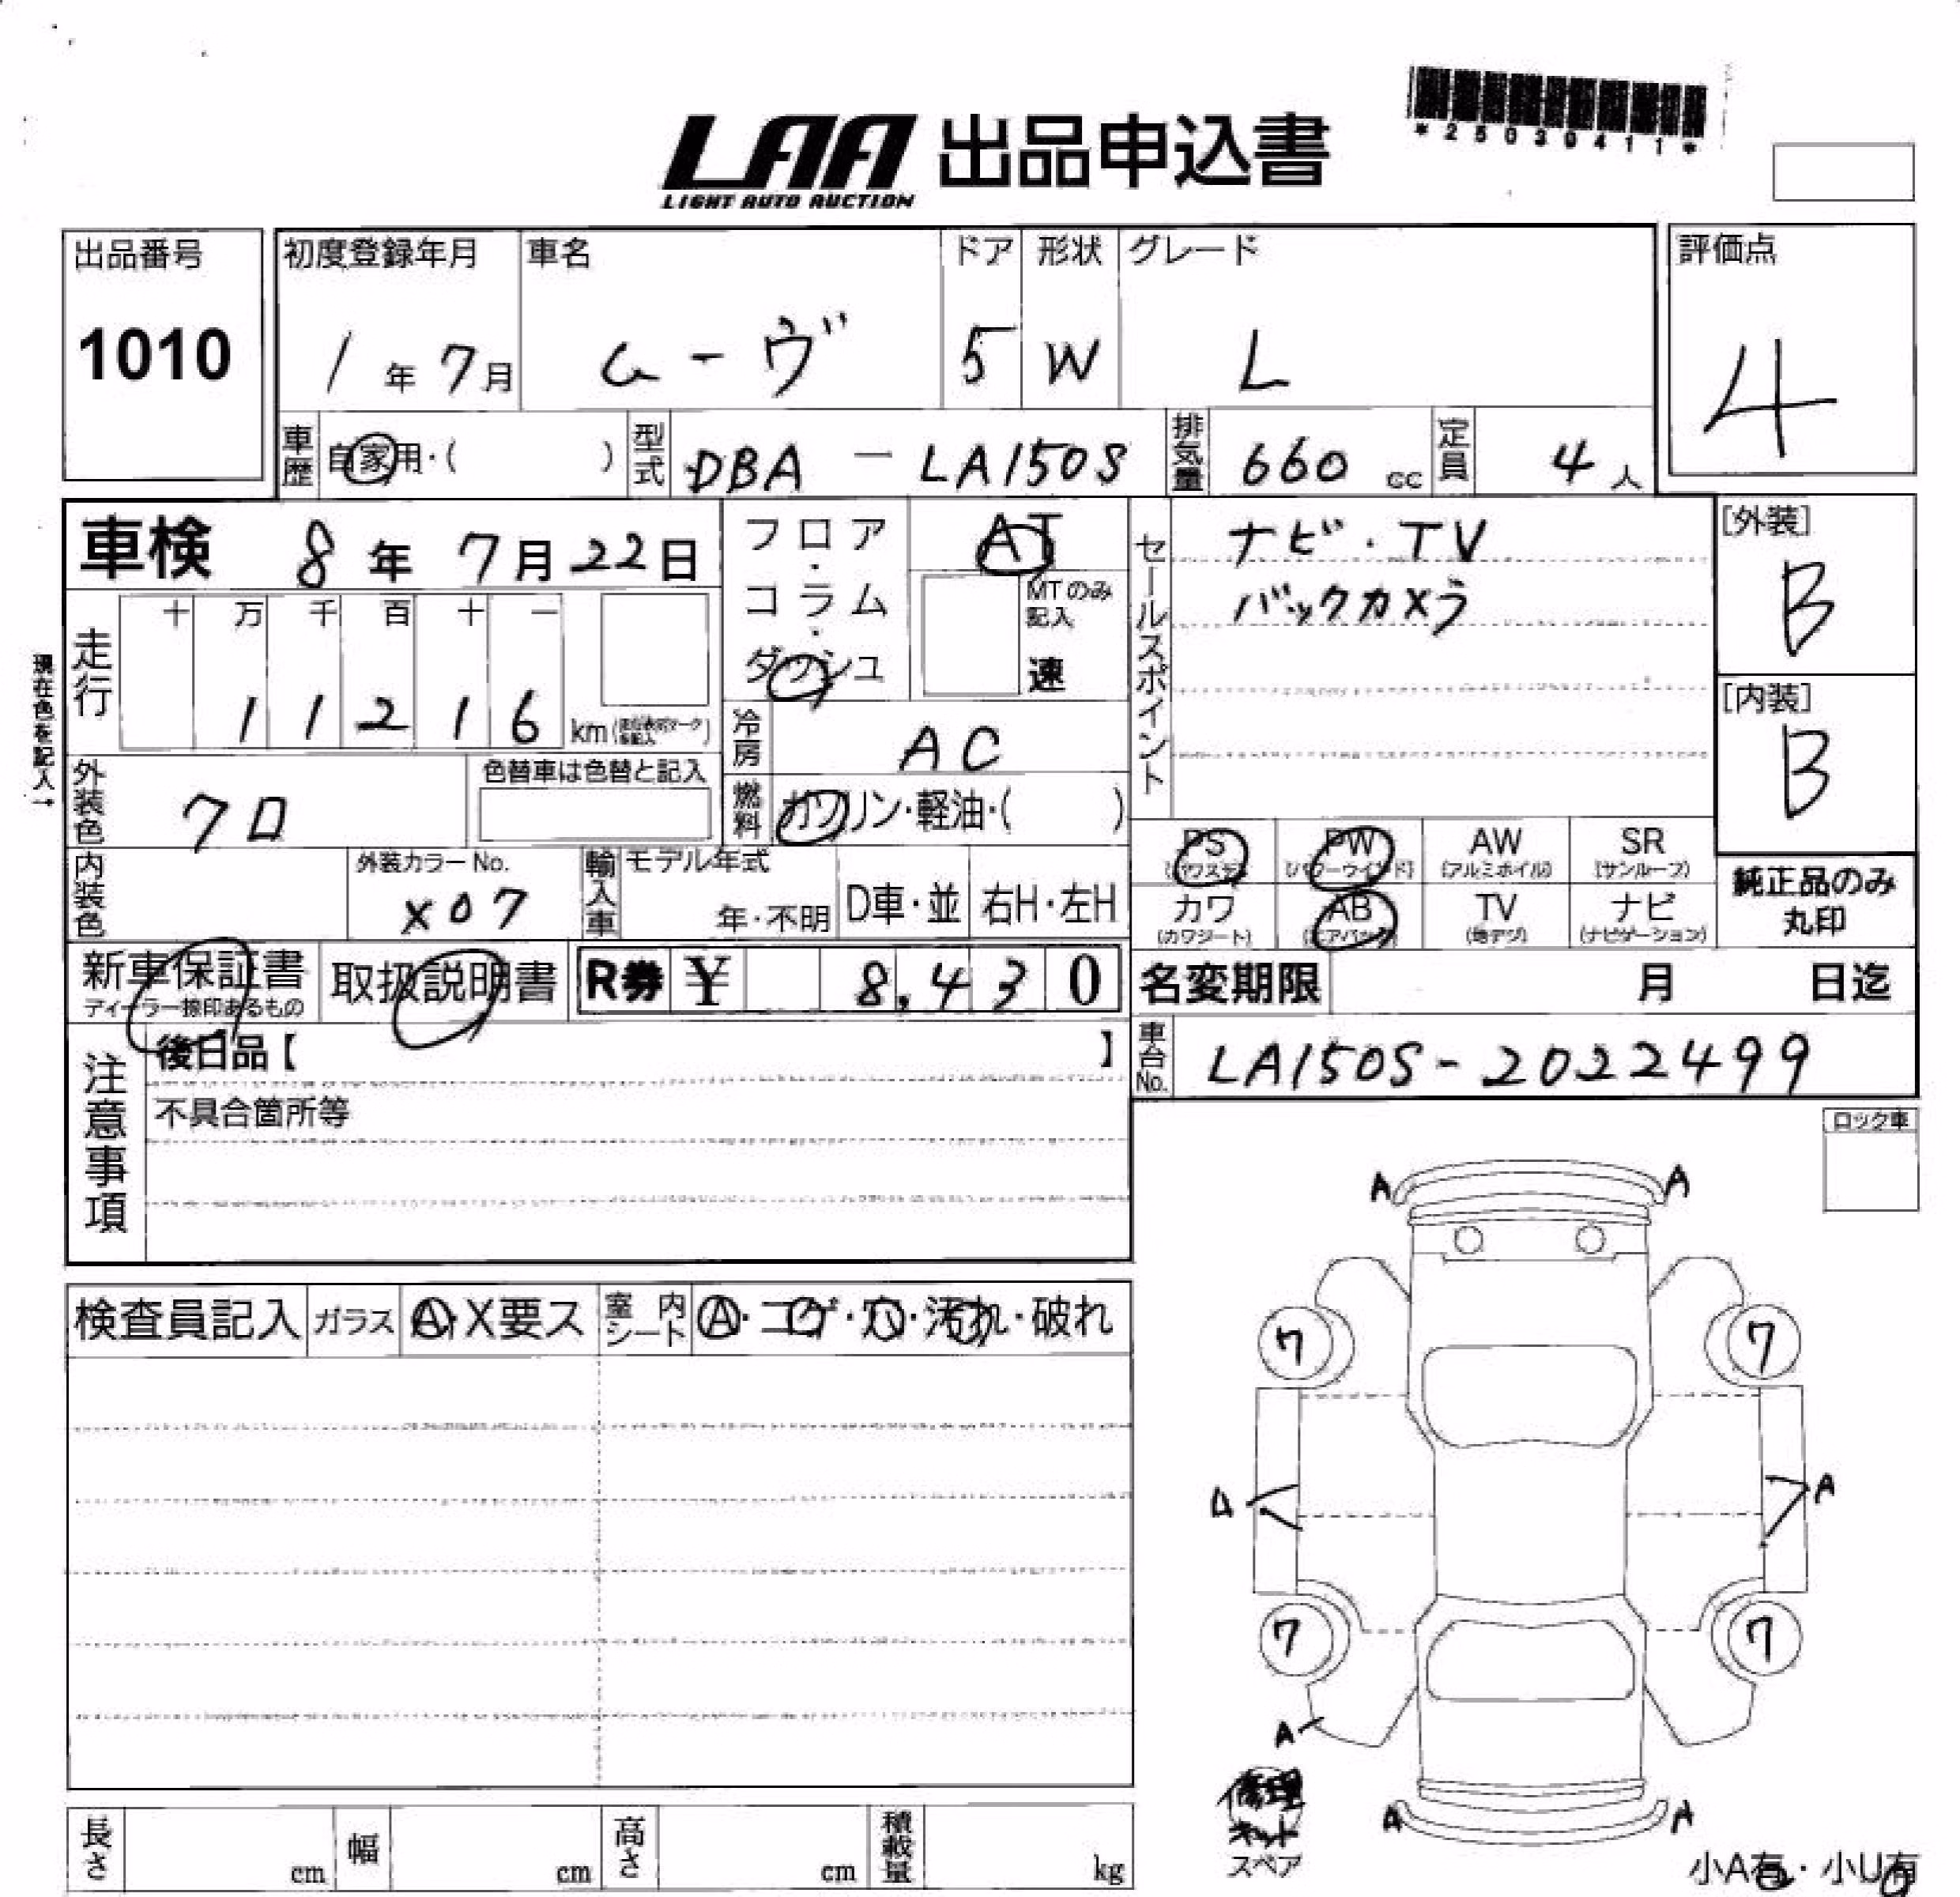 LAA 出品申込書
LIGHT AUTO AUCTION
*25030411*
出品番号
1010
初度登録年月
1年7月
車名
ムーヴ
ドア
5
形状
W
グレード
L
評価点
4
車歴
自家用・( )
型式
DBA-LA150S
排気量
660 cc
定員
4人
車検 8年7月22日
フロア・コラム・ダッシュ
AT
MTのみ記入
速
セールスポイント
ナビ・TV
バックカメラ
[外装]
B
現在色を記入→
走行
十 万 千 百 十 一
1 1 2 1 6 km
[内装]
B
冷房
AC
外装色
クロ
色替車は色替と記入
燃料
ガソリン・軽油・( )
内装色
外装カラーNo.
X07
輸入車
モデル年式
年・不明
D車・並
右H・左H
PS
PW
(パワーウインド)
AW
(アルミホイル)
SR
(サンルーフ)
カワ
(カワシート)
AB
(エアバッグ)
TV
(地デジ)
ナビ
(ナビゲーション)
純正品のみ
丸印
新車保証書
ディーラー捺印あるもの
取扱説明書
R券 ¥ 8,430
名変期限 月 日迄
車台No.
LA150S-2022499
注意事項
後日品【 】
不具合箇所等
ロック車
検査員記入
ガラス
A・X要ス
室内シート
A・コゲ・穴・汚れ・破れ
A A
7 7
A A
7 7
A
A A
修理
キット
スペア
小A有・小U有
長さ cm
幅 cm
高さ cm
積載量 kg